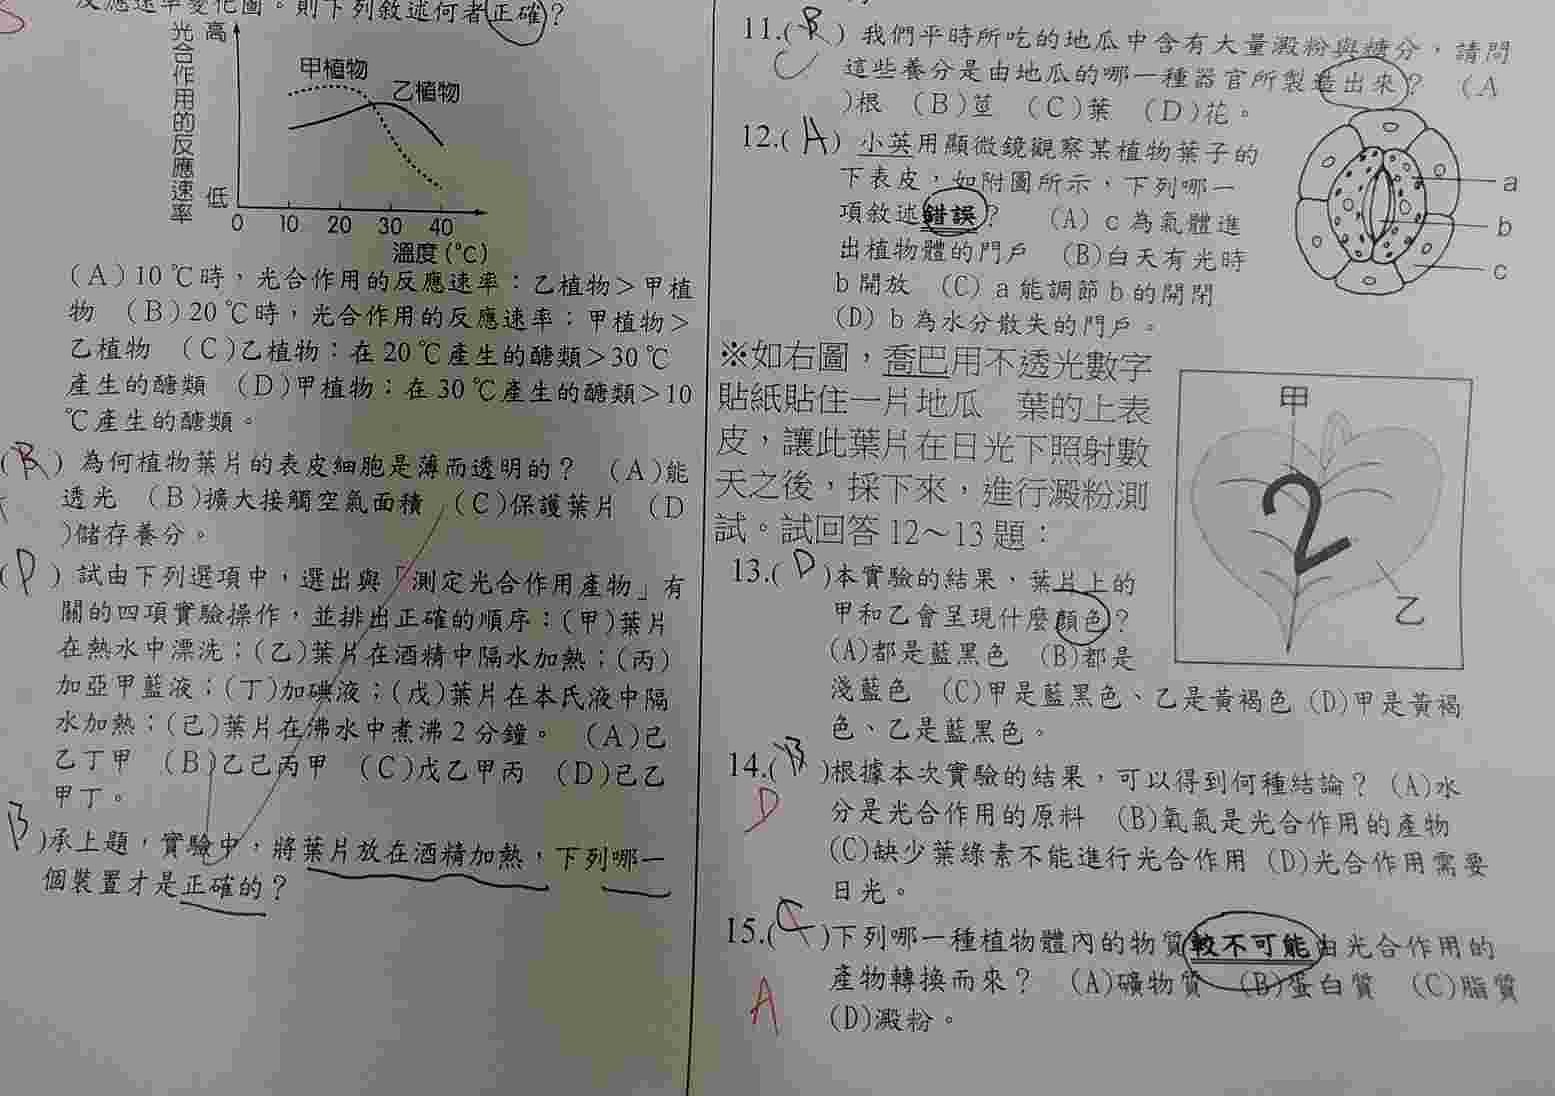 反應速率變化圖。則下列敘述何者正確?
光合作用的反應速率
高
低
甲植物
乙植物
0 10 20 30 40
溫度(℃)
(A)10℃時，光合作用的反應速率：乙植物＞甲植
物 (B)20℃時，光合作用的反應速率：甲植物＞
乙植物 (C)乙植物：在20℃產生的醣類＞30℃
產生的醣類 (D)甲植物：在30℃產生的醣類＞10
℃產生的醣類。
(B) 為何植物葉片的表皮細胞是薄而透明的? (A)能
透光 (B)擴大接觸空氣面積 (C)保護葉片 (D
)儲存養分。
(D) 試由下列選項中，選出與「測定光合作用產物」有
關的四項實驗操作，並排出正確的順序：(甲)葉片
在熱水中漂洗；(乙)葉片在酒精中隔水加熱；(丙)
加亞甲藍液；(丁)加碘液；(戊)葉片在本氏液中隔
水加熱；(己)葉片在沸水中煮沸2分鐘。 (A)己
乙丁甲 (B)乙己丙甲 (C)戊乙甲丙 (D)己乙
甲丁。
B)承上題，實驗中，將葉片放在酒精加熱，下列哪一
個裝置才是正確的?
11.(B) 我們平時所吃的地瓜中含有大量澱粉與糖分，請問
C
這些養分是由地瓜的哪一種器官所製造出來? (A
)根 (B)莖 (C)葉 (D)花。
12.(A) 小英用顯微鏡觀察某植物葉子的
下表皮，如附圖所示，下列哪一
項敘述錯誤? (A) c為氣體進
出植物體的門戶 (B)白天有光時
b開放 (C) a能調節b的開閉
(D) b為水分散失的門戶。
a
b
c
※如右圖，喬巴用不透光數字
貼紙貼住一片地瓜 葉的上表
皮，讓此葉片在日光下照射數
天之後，採下來，進行澱粉測
試。試回答12～13題：
甲
2
乙
13.(D)本實驗的結果，葉片上的
甲和乙會呈現什麼顏色?
(A)都是藍黑色 (B)都是
淺藍色 (C)甲是藍黑色、乙是黃褐色 (D)甲是黃褐
色、乙是藍黑色。
14.(B)根據本次實驗的結果，可以得到何種結論? (A)水
D
分是光合作用的原料 (B)氧氣是光合作用的產物
(C)缺少葉綠素不能進行光合作用 (D)光合作用需要
日光。
15.(C)下列哪一種植物體內的物質較不可能由光合作用的
產物轉換而來? (A)礦物質 (B)蛋白質 (C)脂質
A
(D)澱粉。